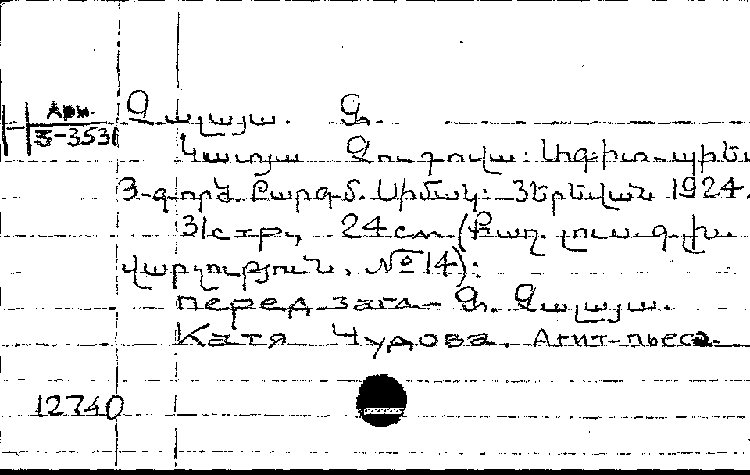 Арм.
Չալայա. Գ.
3-3531
Կատյա Չուդովա: Ագիտ-պիես
3-գործ. Թարգմ. Սիմակ: Յերեվան 1924.
31стр., 24см (Քաղ. լուս. գլխ.
վարչություն. №14):
перед загл- Գ. Չալայա.
Катя Чудова. Агит-пьеса.
12740